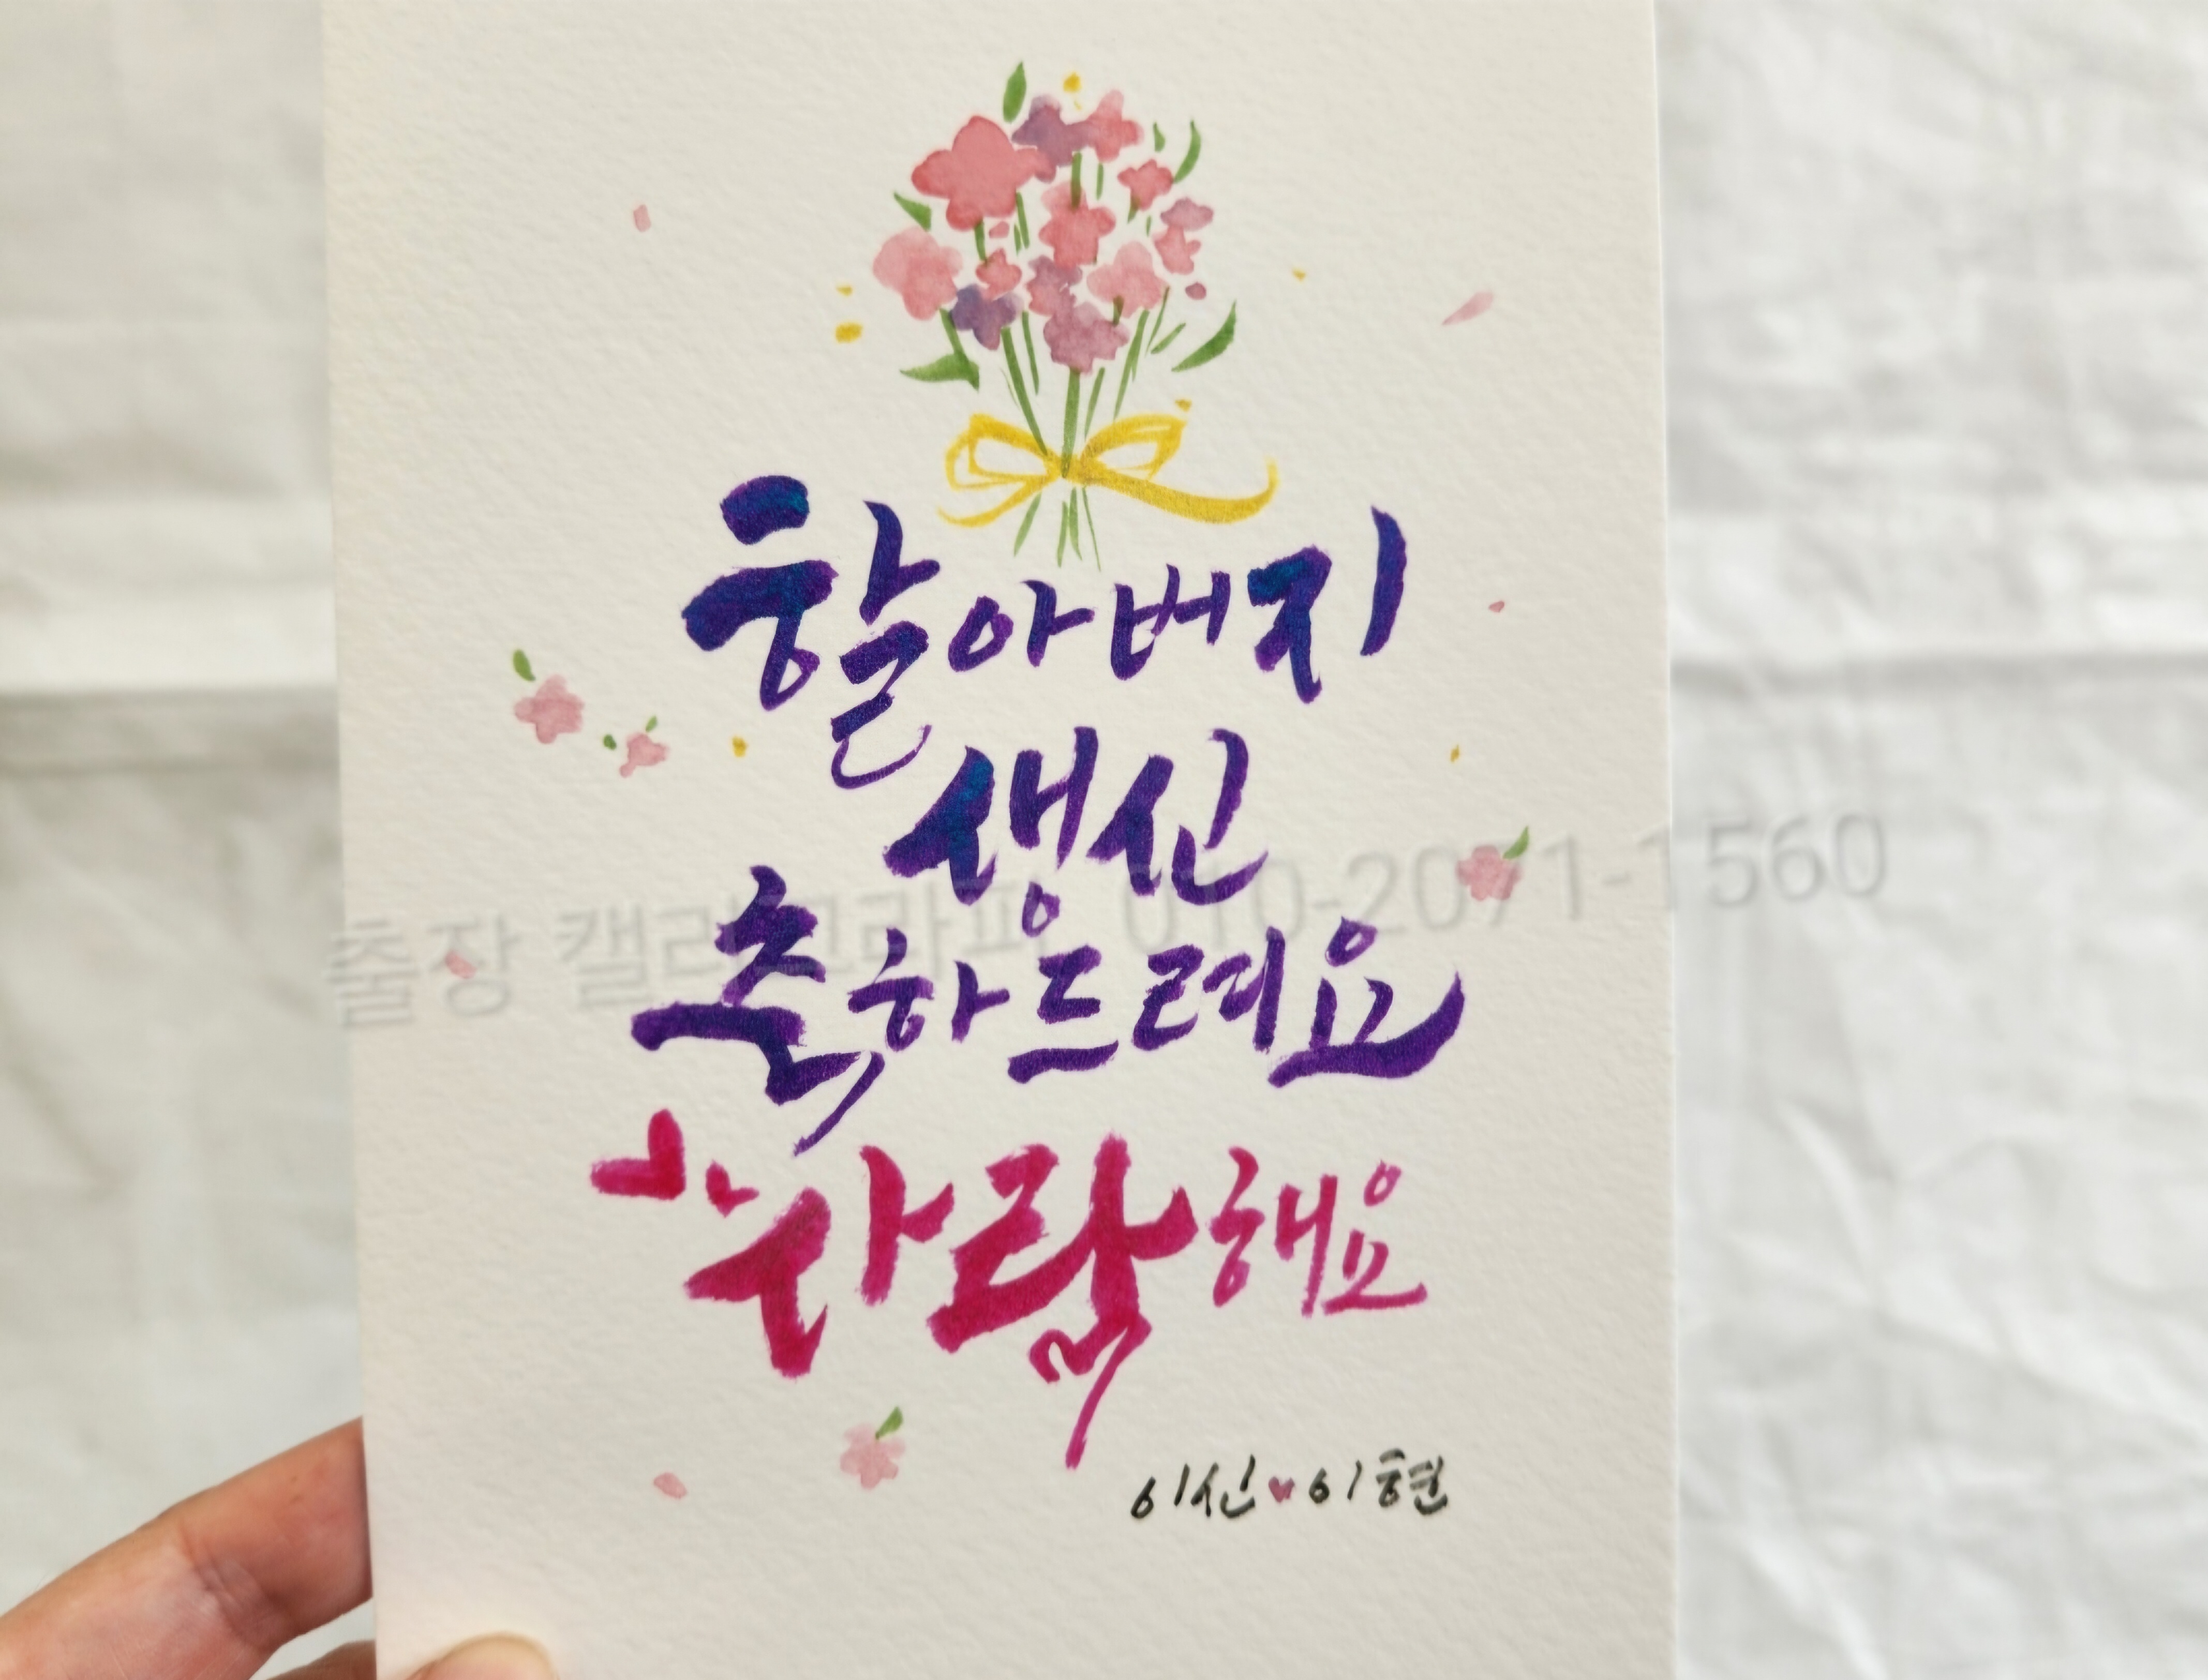 할아버지
생신
축하드려요
사랑해요
이신♥이현
출장 캘리그라피 010-2071-1560